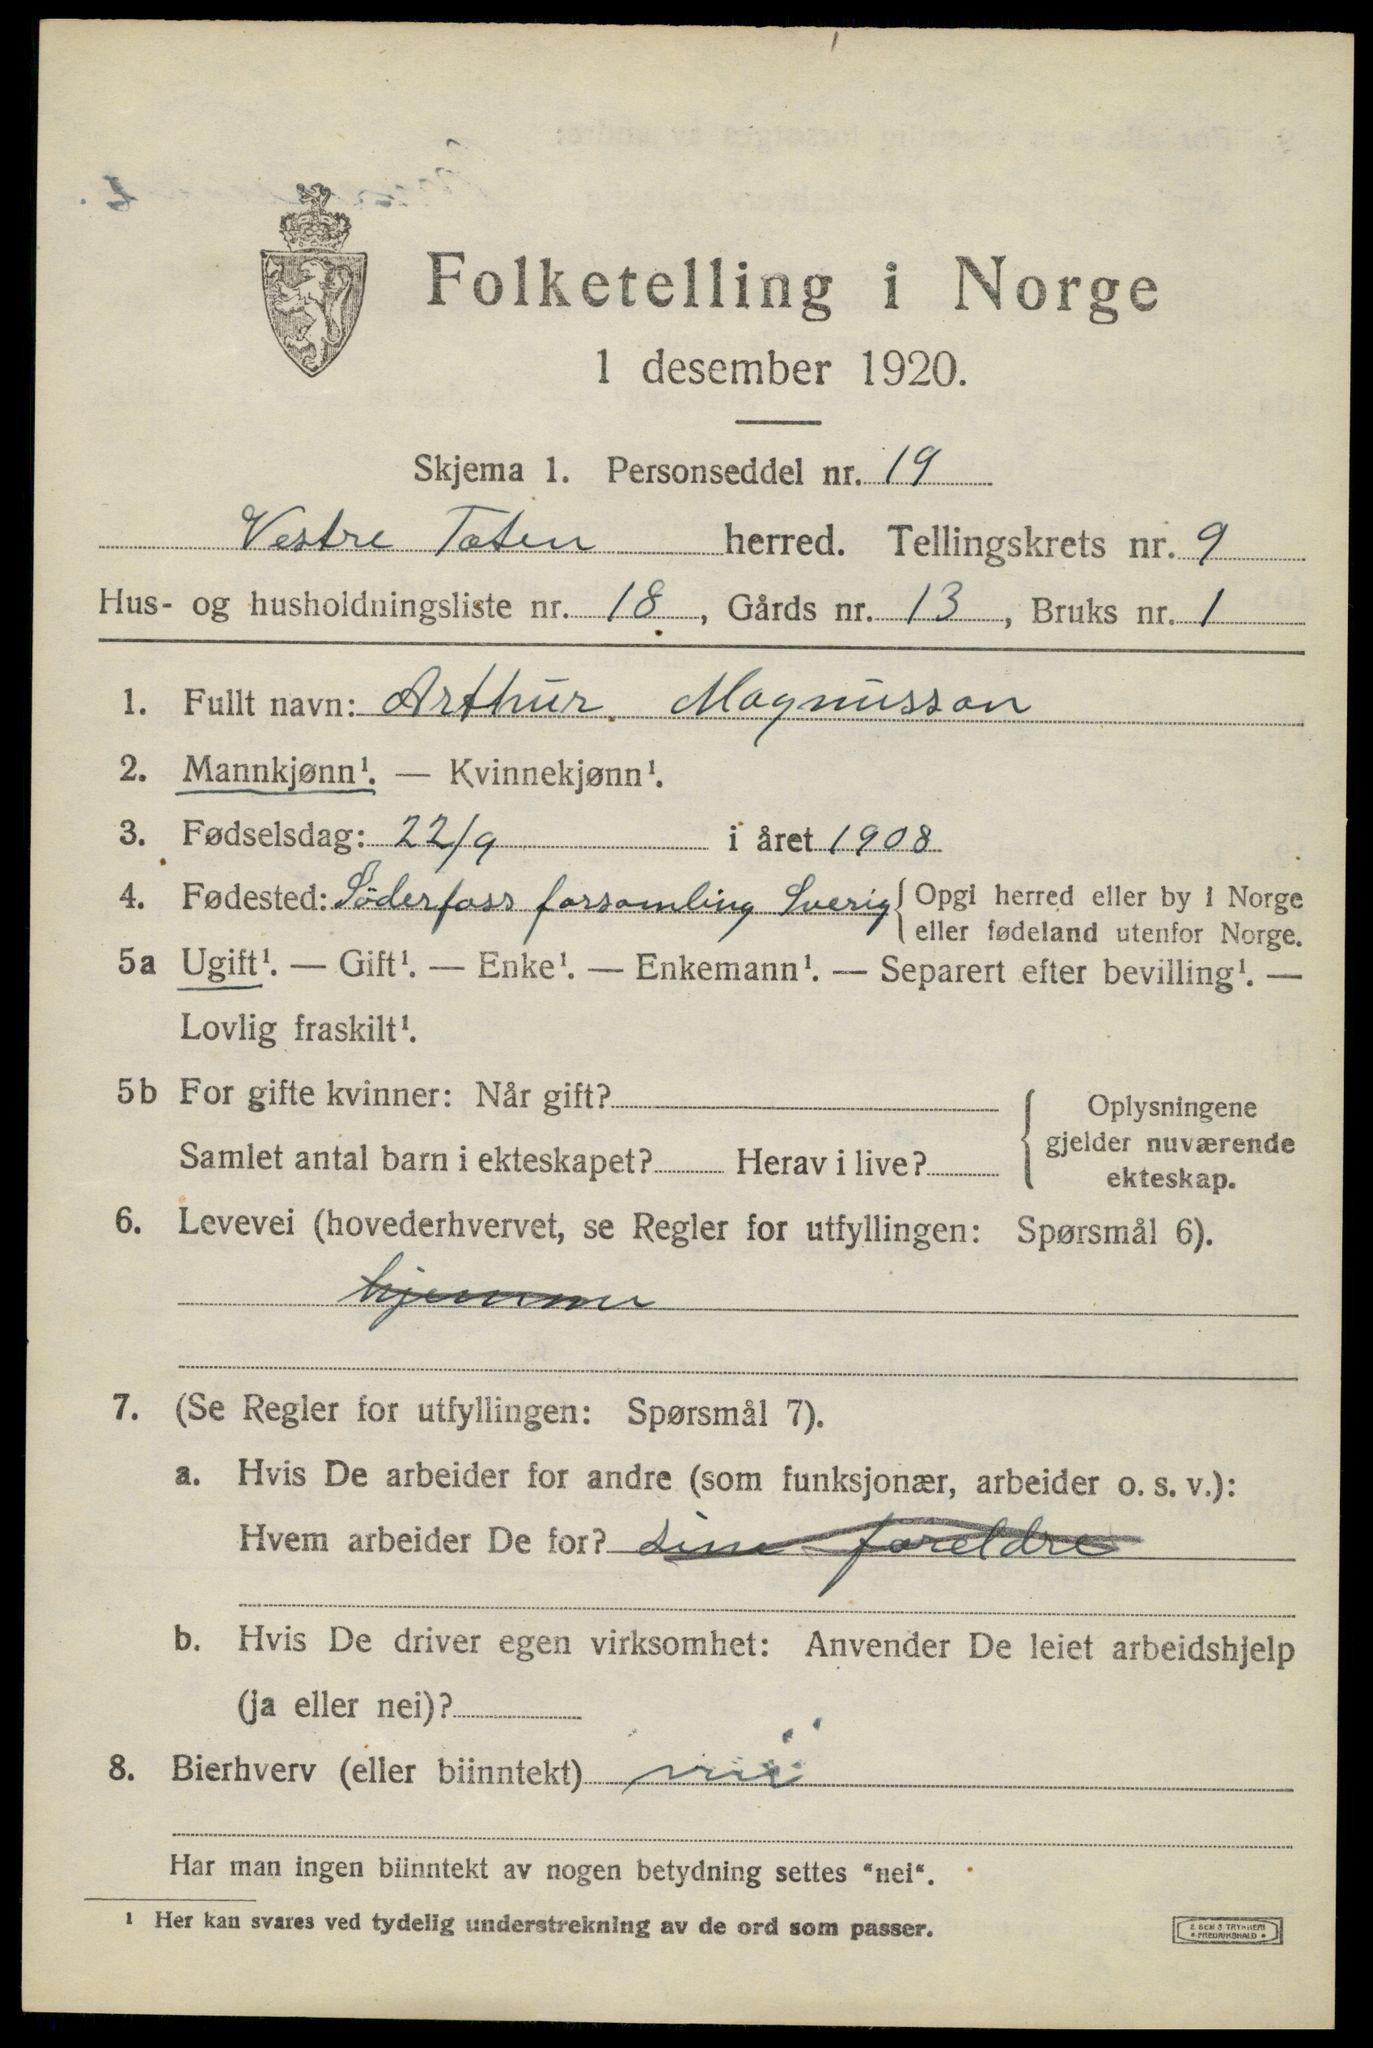 Folketelling i Norge
1 desember 1920.
Skjema 1. Personseddel nr. 19
Vestre Toten herred. Tellingskrets nr. 9
Hus- og husholdningsliste nr. 18, Gårds nr. 13, Bruks nr. 1
1. Fullt navn: Arthur Magnusson
2. Mannkjønn¹. — Kvinnekjønn¹.
3. Fødselsdag: 22/9 i året 1908
4. Fødested: Söderfors forsamling Sverig { Opgi herred eller by i Norge
eller fødeland utenfor Norge.
5a Ugift¹. — Gift¹. — Enke¹. — Enkemann¹. — Separert efter bevilling¹. —
Lovlig fraskilt¹.
5b For gifte kvinner: Når gift?
Samlet antal barn i ekteskapet? Herav i live?
{ Oplysningene
gjelder nuværende
ekteskap.
6. Levevei (hovederhvervet, se Regler for utfyllingen: Spørsmål 6).
hjemme
7. (Se Regler for utfyllingen: Spørsmål 7).
a. Hvis De arbeider for andre (som funksjonær, arbeider o. s. v.):
Hvem arbeider De for? sine foreldre
b. Hvis De driver egen virksomhet: Anvender De leiet arbeidshjelp
(ja eller nei)?
8. Bierhverv (eller biinntekt) nei
Har man ingen biinntekt av nogen betydning settes "nei".
¹ Her kan svares ved tydelig understrekning av de ord som passer.
E. SEM'S TRYKKERI
FREDRIKSHALD